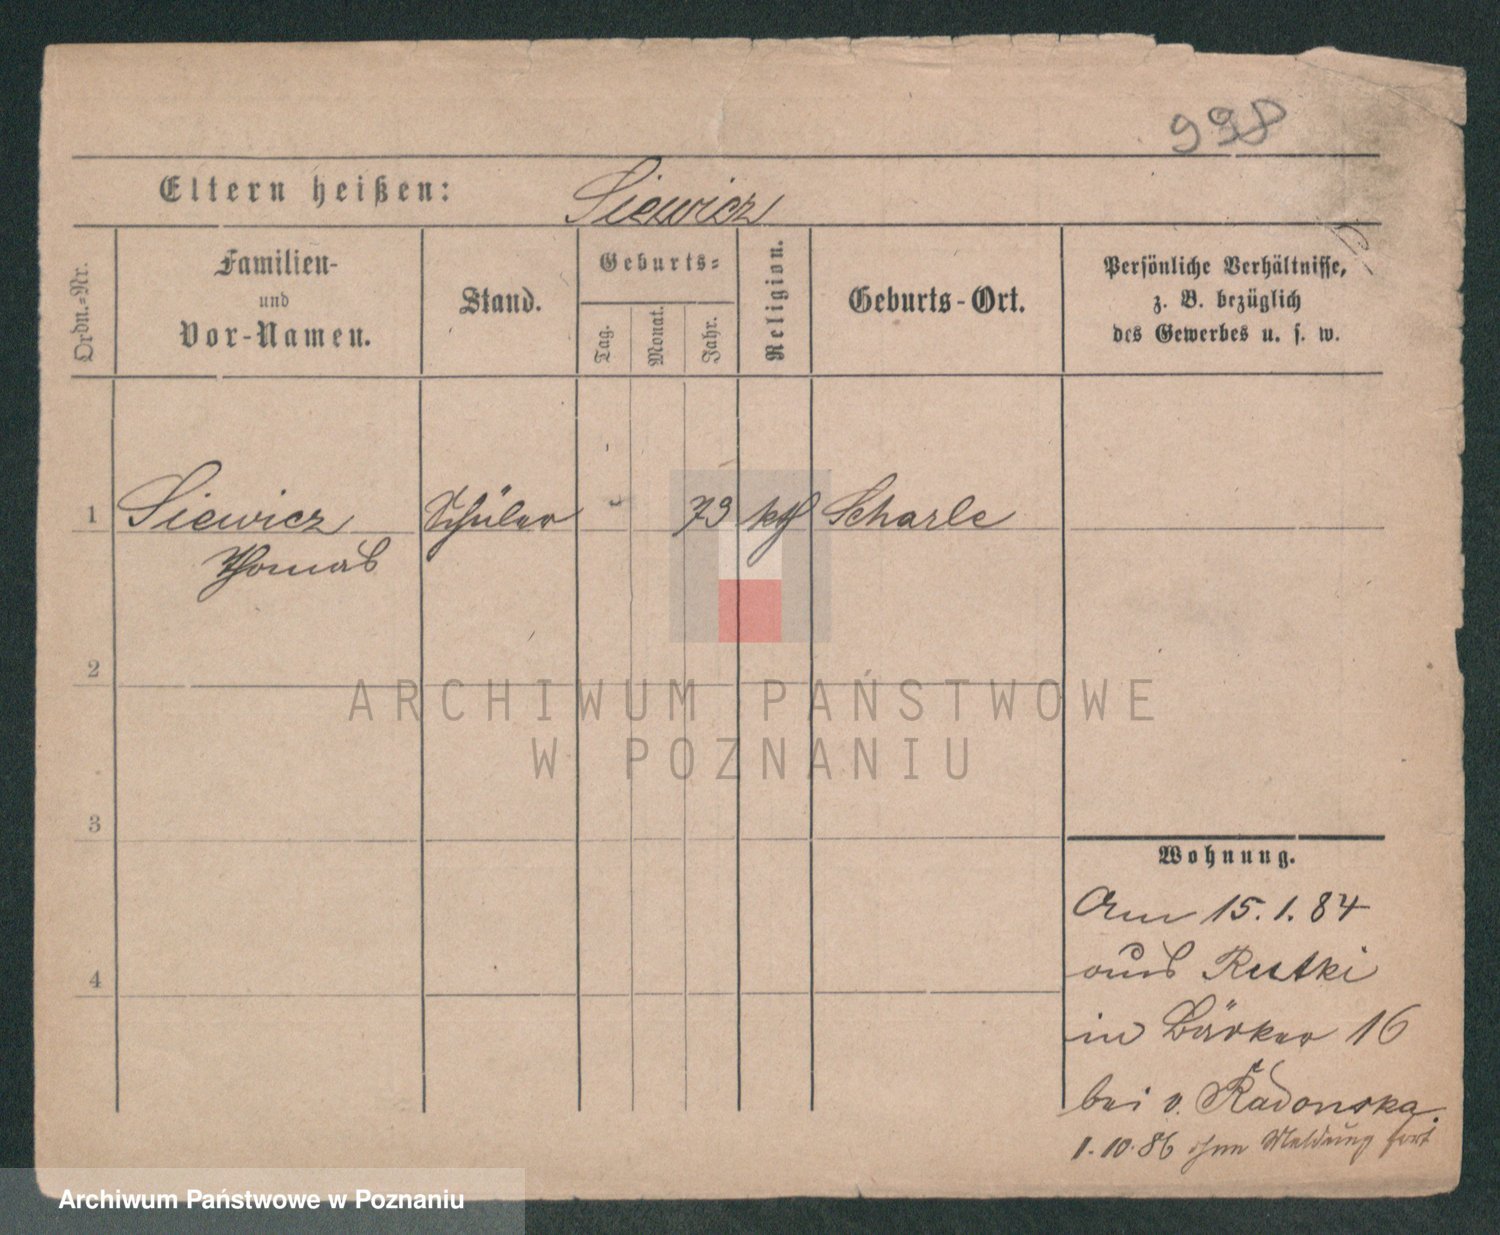 998
Eltern heißen: Siewicz
Ordn.-Nr.
Familien-
und
Vor-Namen.
Stand.
Geburts-
Tag.
Monat.
Jahr.
Religion.
Geburts-Ort.
Persönliche Verhältnisse,
z. B. bezüglich
des Gewerbes u. s. w.
1 Siewicz Schüler - 73 kth Scharle
Thomas
2
ARCHIWUM PAŃSTWOWE
W POZNANIU
3
Wohnung.
Am 15.1.84
aus Rutki
4
in Bäcker 16
bei v. Radonska.
1.10.86 ohne Meldung fort
Archiwum Państwowe w Poznaniu